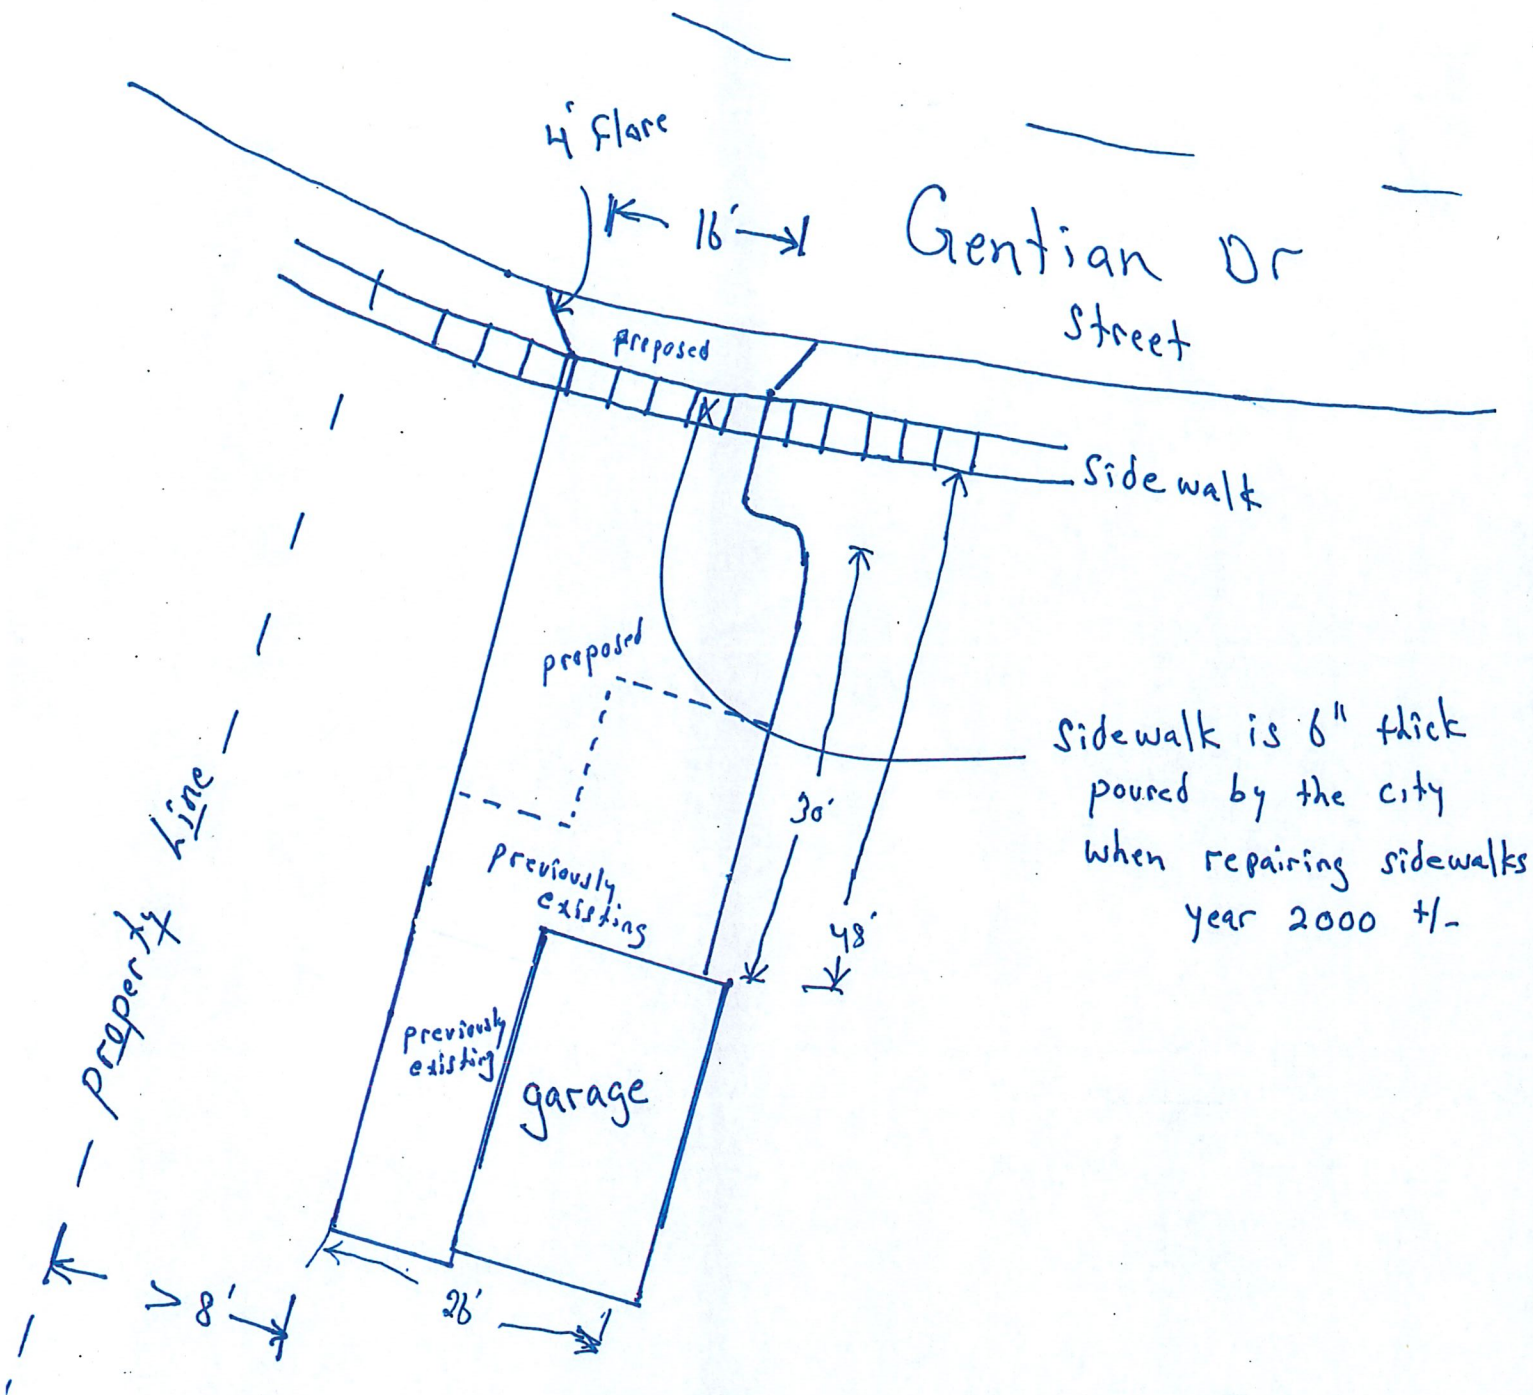 4' flare
16'
Gentian Dr
Street
proposed
Sidewalk
proposed
Sidewalk is 6" thick
poured by the city
when repairing sidewalks
year 2000 +/-
30'
48'
previously
existing
previously
existing
garage
Property Line
> 8'
26'